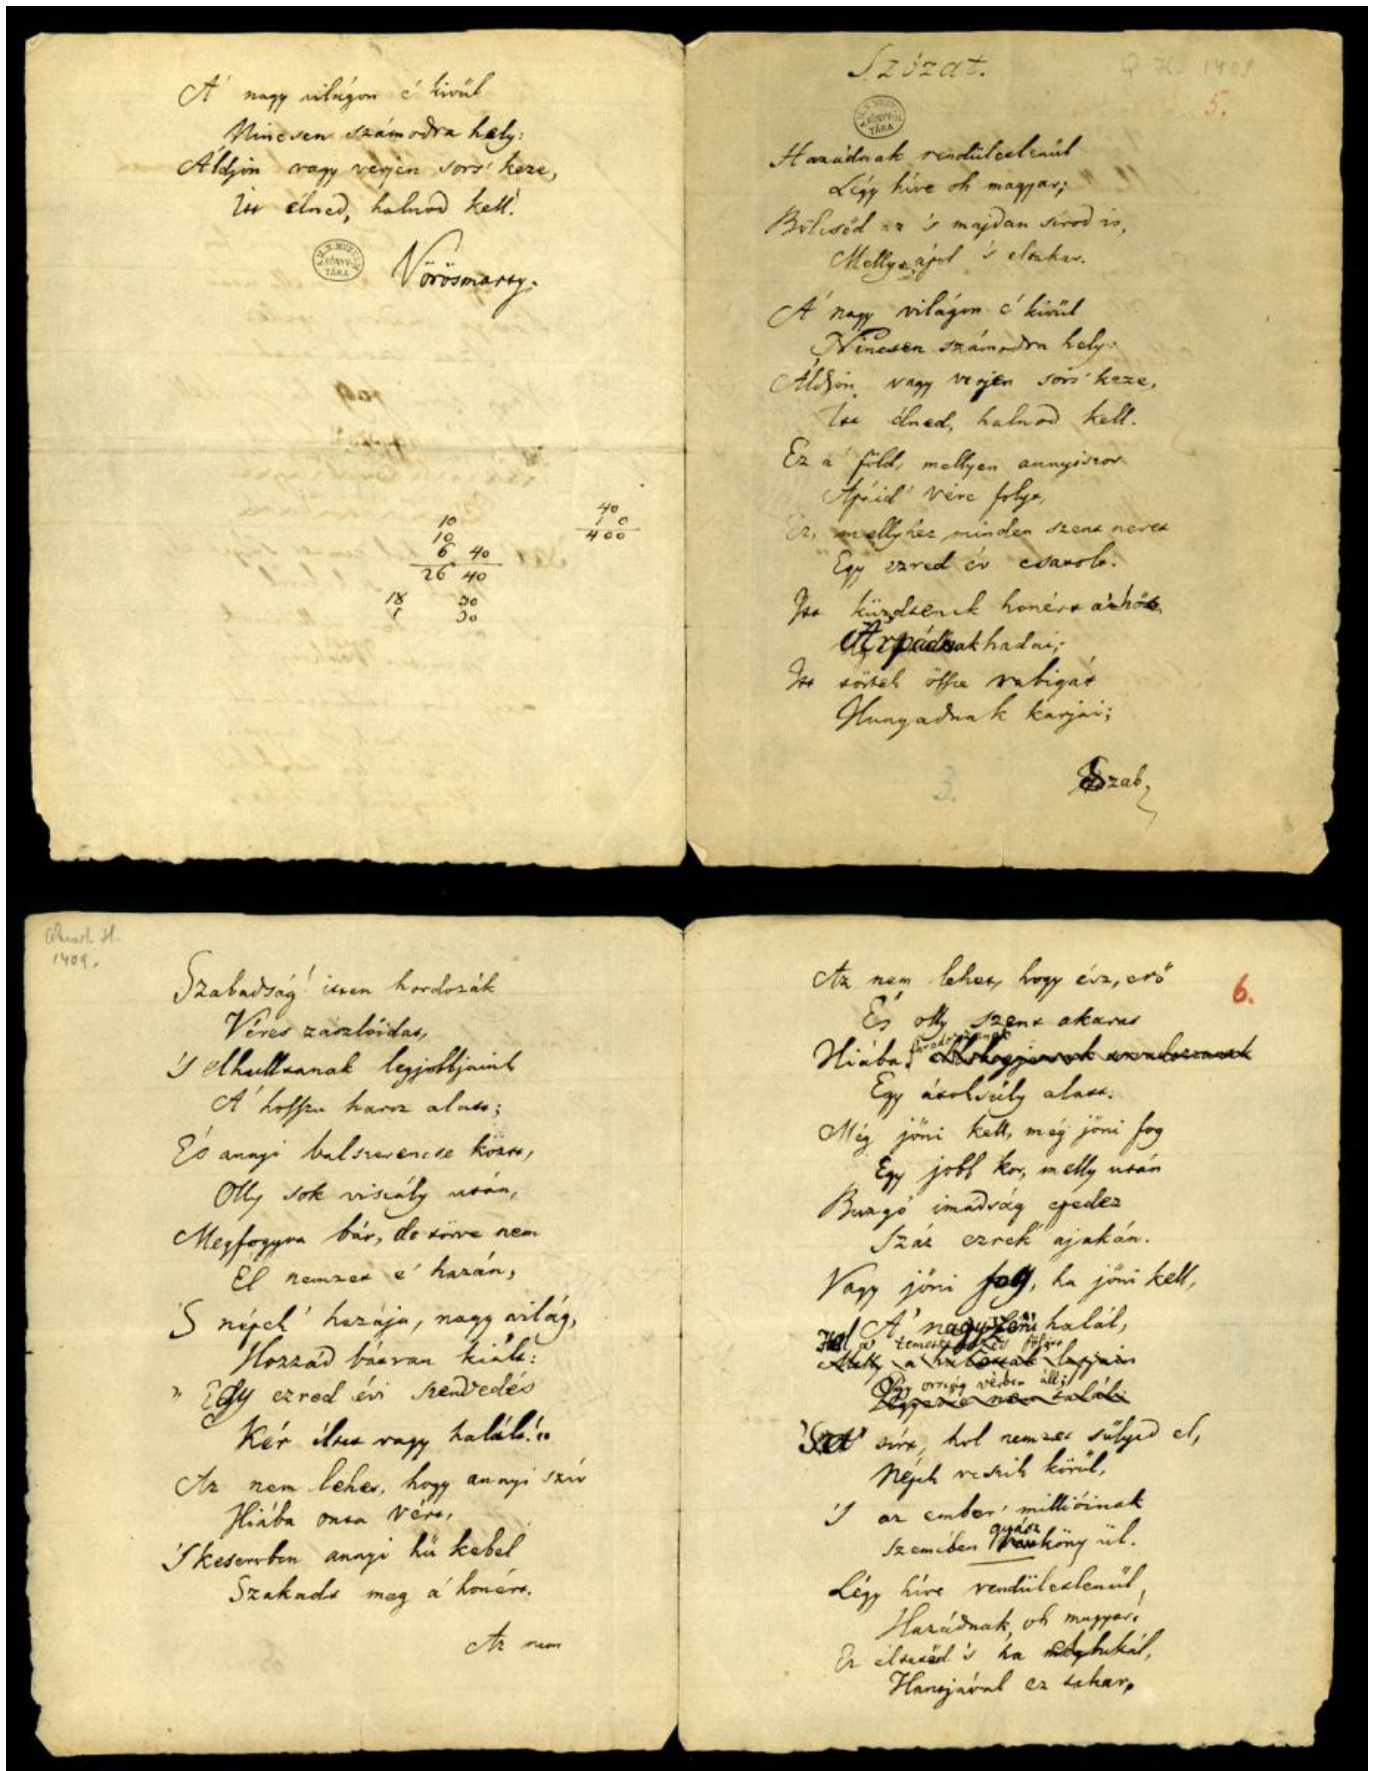 A' nagy világon e' kivűl
Nincsen számodra hely:
Áldjon vagy verjen sors' keze,
Itt élned, halnod kell.
Vörösmarty.
10
10
6 40
26 40
18 30
30
40
10
400
Szózat.
Q H. 1409
5.
M. N. MUZEUM KÖNYV-TÁRA
Hazádnak rendületlenűl
Légy híve oh magyar;
Bölcsőd az 's majdan sírod is,
Melly ápol 's eltakar.
A' nagy világon e' kivűl
Nincsen számodra hely:
Áldjon vagy verjen sors' keze,
Itt élned, halnod kell.
Ez a' föld, mellyen annyiszor
Apáid' vére folyt,
Ez, mellyhez minden szent nevet
Egy ezred év csatolt.
Itt küzdtenek honért a' hős
Árpádnak hadai;
Itt törtek össze rabigát
Hunyadnak karjai;
Szab
3.
Quart. H.
1409.
Szabadság! itten hordozák
Véres zászlóidat,
'S elhulltanak legjobbjaink
A' hosszu harcz alatt;
És annyi balszerencse közt,
Olly sok viszály után,
Megfogyva bár, de törve nem
Él nemzet e' hazán,
'S népek' hazája, nagy világ,
Hozzád bátran kiált:
„Egy ezred évi szenvedés
Kér éltet vagy halált!"
Az nem lehet, hogy annyi szív
Hiába onta vért,
'S keservben annyi hű kebel
Szakadt meg a' honért.
Az nem
Az nem lehet, hogy ész, erő
6.
És olly szent akarat
Hiába sorvadozzanak
Egy átoksúly alatt.
Még jőni kell, még jőni fog
Egy jobb kor, melly után
Buzgó imádság epedez
Száz ezrek' ajakán.
Vagy jőni fog, ha jőni kell,
A' nagyszerű halál,
Hol a' temetkezés fölött
Egy ország vérben áll;
'S a' sírt, hol nemzet sűlyed el,
Népek veszik körűl,
'S az ember' millióinak
Szemében gyász köny űl.
Légy híve rendületlenűl,
Hazádnak, oh magyar:
Ez éltetőd 's ha elbukál,
Hantjával ez takar,